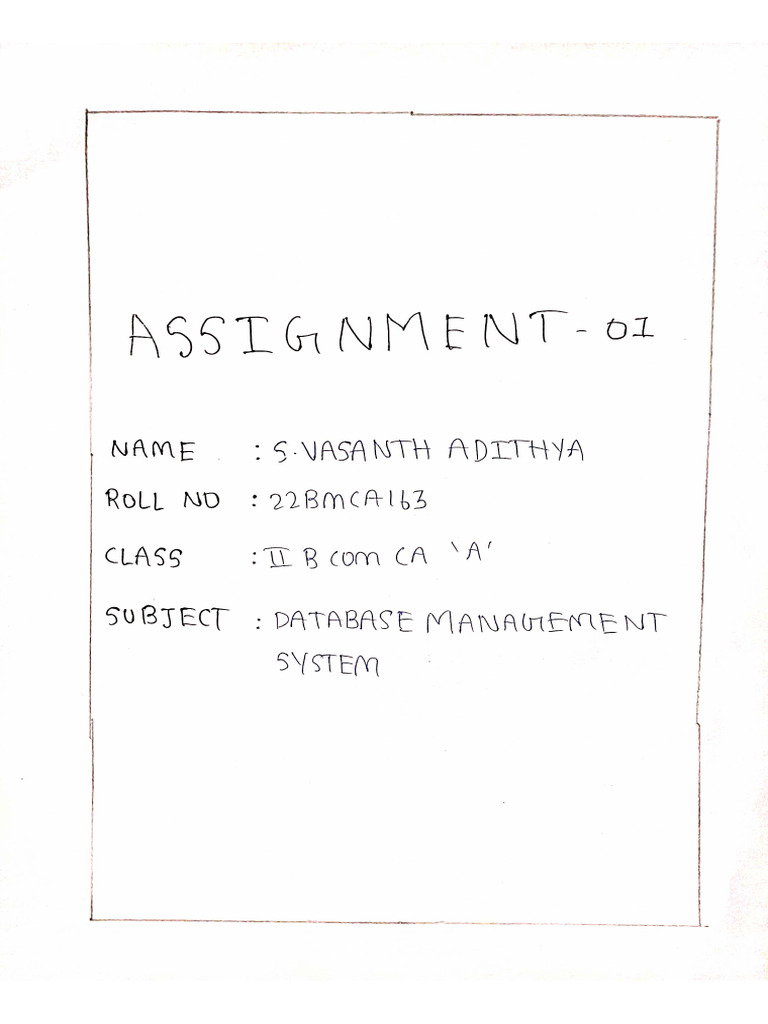 ASSIGNMENT - 01
NAME : S.VASANTH ADITHYA
ROLL NO : 22BMCA163
CLASS : II B COM CA 'A'
SUBJECT : DATABASE MANAGEMENT
SYSTEM